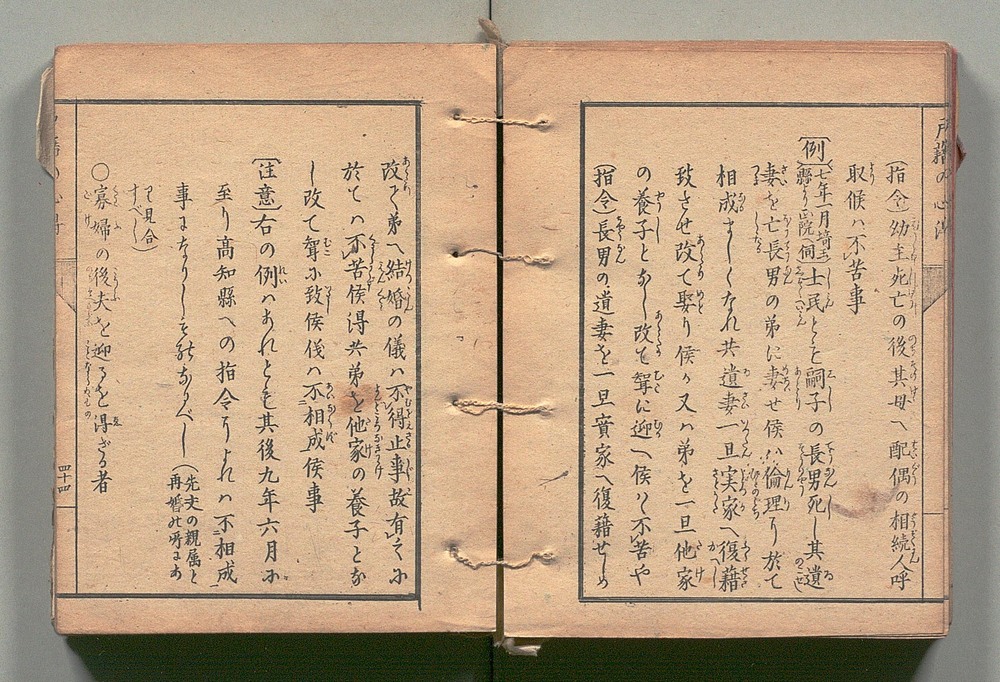 戸籍の心得
(指令)幼主死亡の後其母へ配偶の相続人呼
取候ハ不苦事
〔例〕七年一月埼玉
縣より正院伺
士民とも嗣子の長男死し其遺
妻を亡長男の弟に妻せ候ハ倫理り於て
相成ましくなれ共遺妻一旦実家へ復籍
致させ改て娶り候か又ハ弟を一旦他家
の養子となし改て聟に迎へ候ハ不苦や
(指令)長男の遺妻を一旦實家へ復籍せしめ
改て弟へ結婚の儀ハ不得止事故有之に
於てハ不苦候得共弟を他家の養子とな
し改て聟に致候儀ハ不相成候事
〔注意〕右の例ハあれとも其後九年六月に
至り高知縣への指令うよれハ不相成
事になりしも
べし
(先夫の親属と
再婚の
にあ
り見合
すべし)
○寡婦の後夫を迎るを得ざる者
四十四